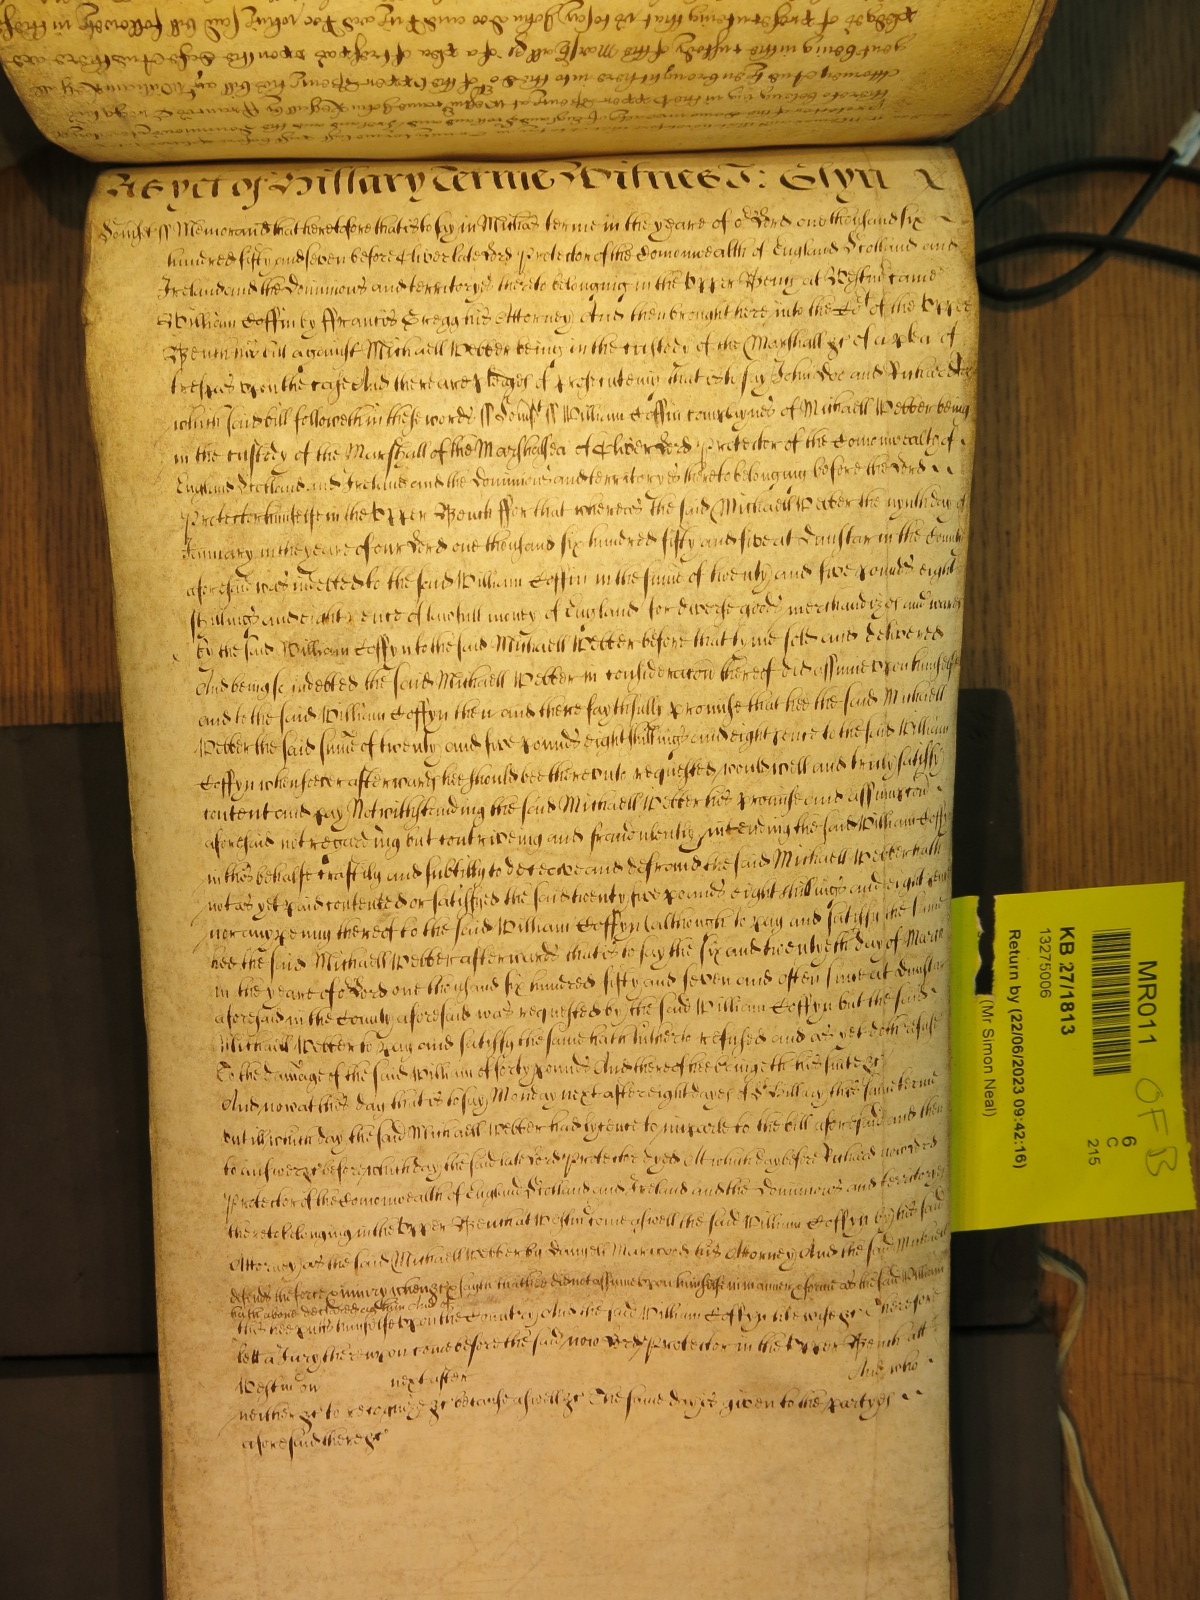 As yet of Hillary Terme Witnes J: Glyn
Somst ss Memorand that heretofore that is to say in Michas terme in the yeare of or Lord one thousand six
hundred fifty and seven before Oliver late Lord Protector of the Comonwealth of England Scotland and
Ireland and the Dominions and territoryes thereto belonging in the Upper Bench at Westmr came
William Coffin by Francis Gregg his Attorney And then brought here into the Cort of the Upper
Bench his bill against Michaell Webber being in the custody of the Marshall &c of a plea of
trespas upon the case And there are pledges of prosecuteing that is to say John Doe and Richard Roe
which said bill followeth in these words ss Somst ss William Coffin complaynes of Michaell Webber being
in the custody of the Marshall of the Marshalsea of Oliver Lord Protector of the Comonwealth of
England Scotland and Ireland and the Dominions and territoryes thereto belonging before the Lord
Protector himselfe in the Upper Bench ffor that whereas the said Michaell Webber the nynth day of
January in the yeare of our Lord one thousand six hundred fifty and five at Dunstar in the County
aforesaid was indebted to the said William Coffin in the sume of twenty and five pounds eight
shillings and eight pence of lawfull money of England for diverse goods merchandizes and wares
by the said William Coffyn to the said Michaell Webber before that tyme sold and delivered
And being so indebted the said Michaell Webber in consideracon thereof did assume upon himselfe
and to the said William Coffyn then and there faythfully promise that hee the said Michaell
Webber the said sume of twenty and five pounds eight shillings and eight pence to the said William
Coffyn whensoever afterwards hee should bee thereunto requested would well and truly satisfy
content and pay Notwithstanding the said Michaell Webber his promise and assumpcon
aforesaid not regarding but contriveing and fraudulently intending the said William Coffyn
in this behalfe craftily and subtilly to deceive and defraud the said Michaell Webber hath
not as yet paid contented or satisfyed the said twenty five pounds eight shillings and eight pence
nor any penny thereof to the said William Coffyn (although to pay and satisfy the same
hee the said Michaell Webber afterwards that is to say the six and twentyeth day of March
in the yeare of or Lord one thousand six hundred fifty and seven and often since at Dunstar
aforesaid in the County aforesaid was requested by the said William Coffyn but the said
Michaell Webber to pay and satisfy the same hath hitherto refused and as yet doth refuse
To the damage of the said William of forty pounds And thereof hee bringeth this suite &c
And now at this day that is to say Monday next after eight dayes of St Hillary this same terme
untill which day the said Michaell Webber had lycence to imparle to the bill aforesaid and then
to answer &c before which day the said late Lord Protector dyed At which day before Richard now Lord
Protector of the Comonwealth of England Scotland and Ireland and the Dominions and territoryes
thereto belonging in the Upper Bench at Westmr come aswell the said William Coffyn by his said
Attorney as the said Michaell Webber by Danyell Marwood his Attorney And the said Michaell
defends the force & iniury when &c & sayth that hee did not assume upon himselfe in manner & forme as the said William
hath above declared agt him And of
this hee puts himselfe upon the Country And the said William Coffyn likewise &c Therefore
lett a Jury thereupon come before the said now Lord Protector in the Upper Bench att
Westmr on next after And who
neither &c to recognize &c because aswell &c The same day is given to the partyes
aforesaid there &c
MR011
6
C
215
KB 27/1813
13275006
(Mr Simon Neal)
Return by (22/06/2023 09:42:16)
OFB